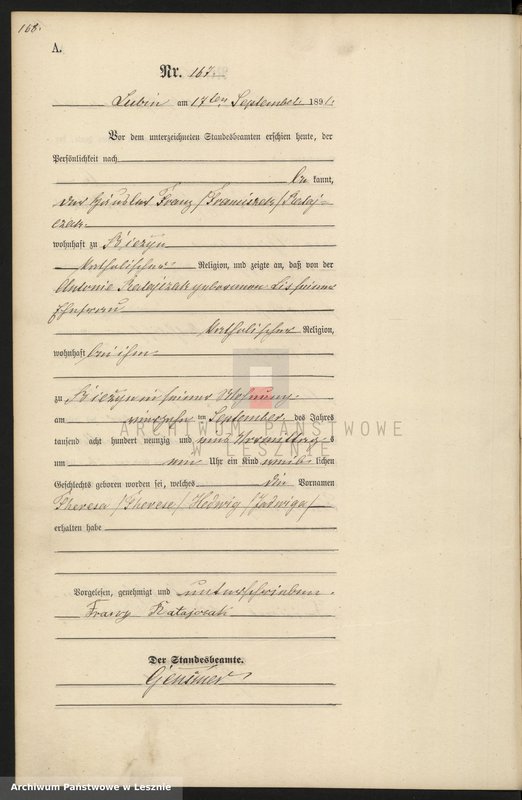 168.
A.
Nr. 167
Lubin am 17ten September 1891.
Vor dem unterzeichneten Standesbeamten erschien heute, der
Persönlichkeit nach
be kannt,
der Häusler Franz /Franciszek/ Rataj-
czak
wohnhaft zu Bieżyn
katholischer Religion, und zeigte an, daß von der
Antonie Ratajczak geborenen seiner
Ehefrau
katholischer Religion,
wohnhaft bei ihm
zu Bieżyn in seiner Wohnung
am ten September des Jahres
tausend acht hundert neunzig und eins Vormittags
um Uhr ein Kind weib lichen
Geschlechts geboren worden sei, welches die Vornamen
Theresa /Therese/ Hedwig /Jadwiga/
erhalten habe
Vorgelesen, genehmigt und unterschrieben.
Franz Ratajczak
Der Standesbeamte.
ARCHIWUM PAŃSTWOWE
W LESZNIE
Archiwum Państwowe w Lesznie